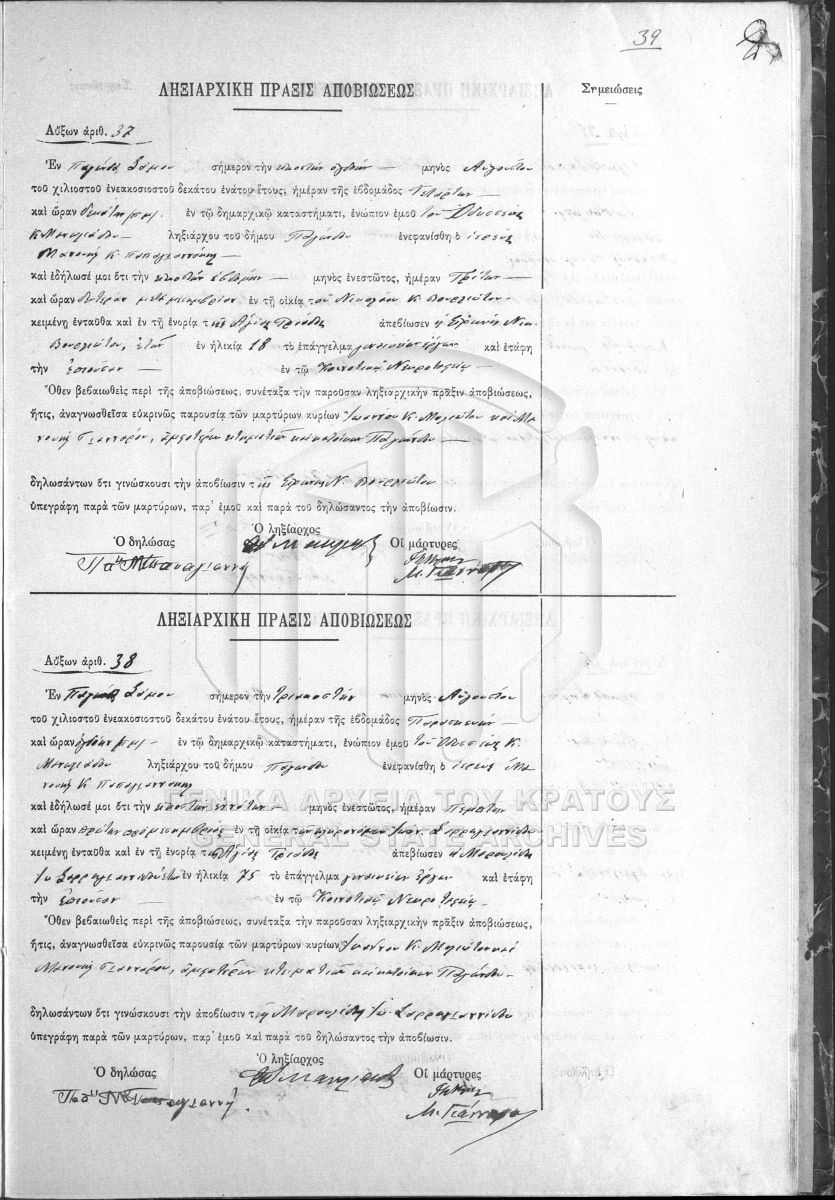 39
ΛΗΞΙΑΡΧΙΚΗ ΠΡΑΞΙΣ ΑΠΟΒΙΩΣΕΩΣ
Σημειώσεις
Αὔξων ἀριθ. 37
Ἐν Σάμου σήμερον τὴν εἰκοστὴν ὀγδόην μηνὸς Αὐγούστου
τοῦ χιλιοστοῦ ἐνεακοσιοστοῦ δεκάτου ἐνάτου ἔτους, ἡμέραν τῆς ἑβδομάδος Τετάρτην
καὶ ὥραν δεκάτην π.μ. ἐν τῷ δημαρχικῷ καταστήματι, ἐνώπιον ἐμοῦ τοῦ Ὀδυσσέως
Κ. ληξιάρχου τοῦ δήμου ἐνεφανίσθη ὁ ἱερεὺς
Μανουὴλ Κ. Παπαγιαννάκης
καὶ ἐδήλωσέ μοι ὅτι τὴν εἰκοστὴν ἑβδόμην μηνὸς ἐνεστῶτος, ἡμέραν Τρίτην
καὶ ὥραν μετὰ μεσημβρίαν ἐν τῇ οἰκίᾳ τοῦ Νικολάου Κ. Βουρλιώτου
κειμένῃ ἐνταῦθα καὶ ἐν τῇ ἐνορίᾳ τῆς Ἁγίας Τριάδος ἀπεβίωσεν ἡ Εἰρήνη Νικ.
Βουρλιώτου, ἐτῶν ἐν ἡλικίᾳ 18 τὸ ἐπάγγελμα γυναικεῖα ἔργα καὶ ἐτάφη
τὴν ἐπιοῦσαν ἐν τῷ Κοινοτικῷ Νεκροταφείῳ
Ὅθεν βεβαιωθεὶς περὶ τῆς ἀποβιώσεως, συνέταξα τὴν παροῦσαν ληξιαρχικὴν πρᾶξιν ἀποβιώσεως,
ἥτις, ἀναγνωσθεῖσα εὐκρινῶς παρουσίᾳ τῶν μαρτύρων κυρίων Ἰωάννου Κ. καὶ Μα-
νουὴλ Γιανναροῦ, ἀμφοτέρων κτηματιῶν κατοίκων
δηλωσάντων ὅτι γινώσκουσι τὴν ἀποβίωσιν τῆς Εἰρήνης Ν. Βουρλιώτου
ὑπεγράφη παρὰ τῶν μαρτύρων, παρ' ἐμοῦ καὶ παρὰ τοῦ δηλώσαντος τὴν ἀποβίωσιν.
Ὁ δηλώσας Ὁ ληξίαρχος Οἱ μάρτυρες
Μ. Γιάνναρος
ΛΗΞΙΑΡΧΙΚΗ ΠΡΑΞΙΣ ΑΠΟΒΙΩΣΕΩΣ
Αὔξων ἀριθ. 38
Ἐν Σάμου σήμερον τὴν τριακοστὴν μηνὸς Αὐγούστου
τοῦ χιλιοστοῦ ἐνεακοσιοστοῦ δεκάτου ἐνάτου ἔτους, ἡμέραν τῆς ἑβδομάδος Παρασκευὴν
καὶ ὥραν ὀγδόην π.μ. ἐν τῷ δημαρχικῷ καταστήματι, ἐνώπιον ἐμοῦ τοῦ Ὀδυσσέως Κ.
ληξιάρχου τοῦ δήμου ἐνεφανίσθη ὁ ἱερεὺς Μα-
νουὴλ Κ. Παπαγιαννάκης
ΓΕΝΙΚΑ ΑΡΧΕΙΑ ΤΟΥ ΚΡΑΤΟΥΣ
καὶ ἐδήλωσέ μοι ὅτι τὴν εἰκοστὴν ἐννάτην μηνὸς ἐνεστῶτος, ἡμέραν Πέμπτην
καὶ ὥραν πρώτην ἐν τῇ οἰκίᾳ τῶν κληρονόμων Ἰωάν.
GENERAL STATE ARCHIVES
κειμένῃ ἐνταῦθα καὶ ἐν τῇ ἐνορίᾳ τῆς Ἁγίας Τριάδος ἀπεβίωσεν ἡ
ἐν ἡλικίᾳ 75 τὸ ἐπάγγελμα γυναικείων ἔργων καὶ ἐτάφη
τὴν ἐπιοῦσαν ἐν τῷ Κοινοτικῷ Νεκροταφείῳ
Ὅθεν βεβαιωθεὶς περὶ τῆς ἀποβιώσεως, συνέταξα τὴν παροῦσαν ληξιαρχικὴν πρᾶξιν ἀποβιώσεως,
ἥτις, ἀναγνωσθεῖσα εὐκρινῶς παρουσίᾳ τῶν μαρτύρων κυρίων Ἰωάννου Κ. καὶ
Μανουὴλ Γιανναροῦ, ἀμφοτέρων κτηματιῶν κατοίκων
δηλωσάντων ὅτι γινώσκουσι τὴν ἀποβίωσιν τῆς
ὑπεγράφη παρὰ τῶν μαρτύρων, παρ' ἐμοῦ καὶ παρὰ τοῦ δηλώσαντος τὴν ἀποβίωσιν.
Ὁ δηλώσας Ὁ ληξίαρχος Οἱ μάρτυρες
Μ. Γιάνναρος